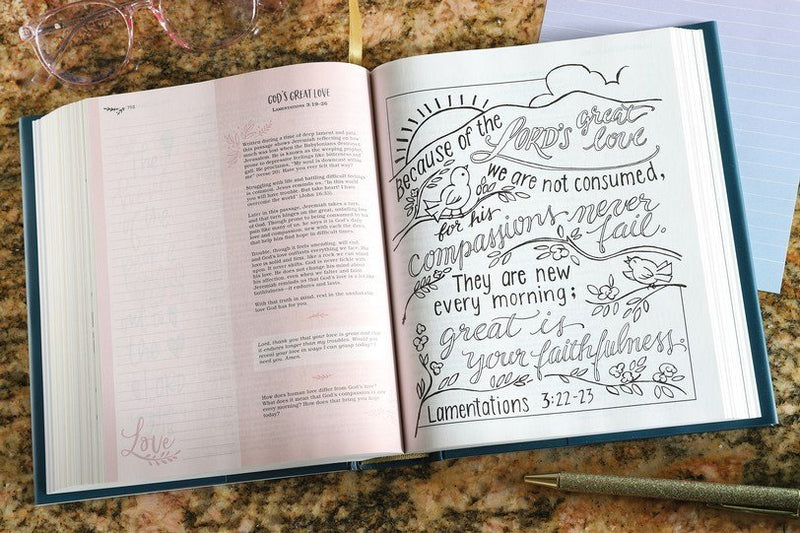 GOD'S GREAT LOVE
LAMENTATIONS 3:19-26
Written during a time of deep lament and pain,
this passage shows Jeremiah reflecting on how
much was lost when the Babylonians destroyed
Jerusalem. He is known as the weeping prophet,
prone to depressive feelings like bitterness and
gall. He proclaims, "My soul is downcast within
me" (verse 20). Have you ever felt that way?
Struggling with life and battling difficult feelings
is common. Jesus reminds us, "In this world
you will have trouble. But take heart! I have
overcome the world" (John 16:33).
Later in this passage, Jeremiah takes a turn,
and that turn hinges on the great, unfailing love
of God. Though prone to being consumed by his
pain like many of us, he says it is God's daily
love and compassion, new with each the dawn,
that help him find hope in difficult times.
Trouble, though it feels unending, will end,
and God's love outlasts everything we face. His
love is solid and firm, like a rock we can stand
upon. It never shifts. God is never fickle with
his love. He does not change his mind about
his affection, even when we falter and fail.
Jeremiah reminds us that God's love is a
faithfulness—it endures and lasts.
With that truth in mind, rest in the
love God has for you.
Lord, thank you that your love is great and that
it endures longer than my troubles. Would you
reveal your love in ways I can grasp today? I
need you. Amen.
How does human love differ from God's love?
What does it mean that God's compassion is
every morning? How does that bring you hope
today?
Love
Because of the LORD'S great love
we are not consumed,
for his
compassions never
fail.
They are new
every morning;
great is
your faithfulness.
Lamentations 3:22-23